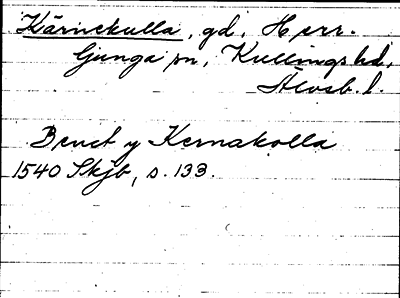 Kärnekulla, gd, Herr-
ljunga sn, Kullings hd,
Älvsb. l.
Benct y Kernakolla
1540 Skjb, s. 133.